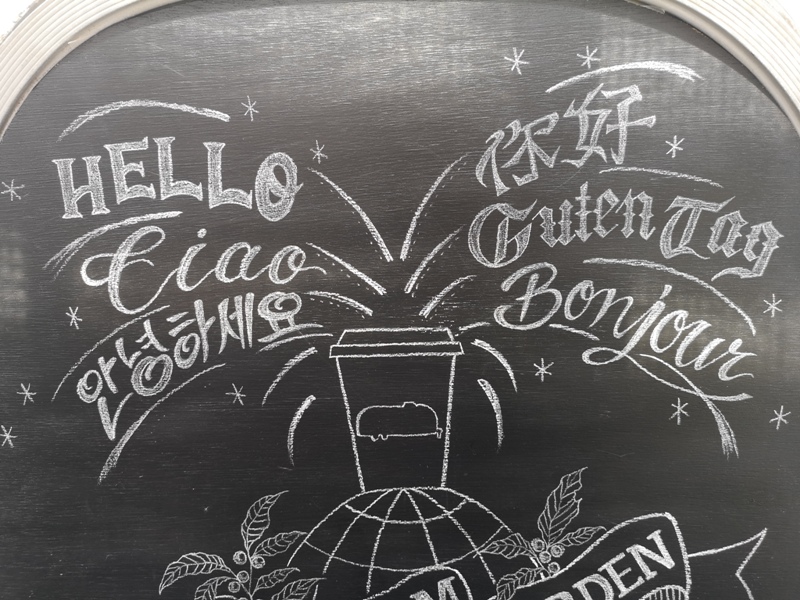 HELLO
Ciao
안녕하세요
你好
Guten Tag
Bonjour